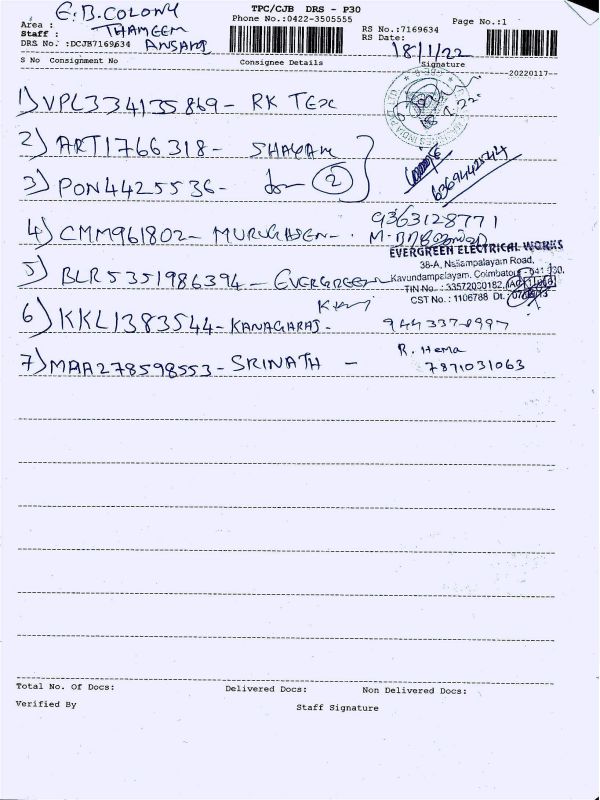 E.B.COLONY
TPC/CJB DRS - P30
Area :
Phone No.:0422-3505555
Page No.:1
Staff : THAMEEM
RS No.:7169634
DRS No. :DCJB7169634 ANSARI
RS Date: 18/1/22
S No Consignment No
Consignee Details
Signature
20220117
1) VPL334135869 - RK TEX
2) ART1766318 - SHAYAM
3) PON4425536 - do 2
6369442544
9363128771
4) CMM961802 - MURUGASEN -
EVERGREEN ELECTRICAL WORKS
38-A, Nallampalayam Road,
5) BLR5351986394 - EVERGREEN
Kavundampalayam, Coimbatore - 641 030.
TIN No. : 33572030182
CST No. : 1106788 Dt.
6) KKL1383544 - KANAGARAJ -
7) MAA278598553 - SRINATH -
R. Hema
7871031063
Total No. Of Docs:
Delivered Docs:
Non Delivered Docs:
Verified By
Staff Signature